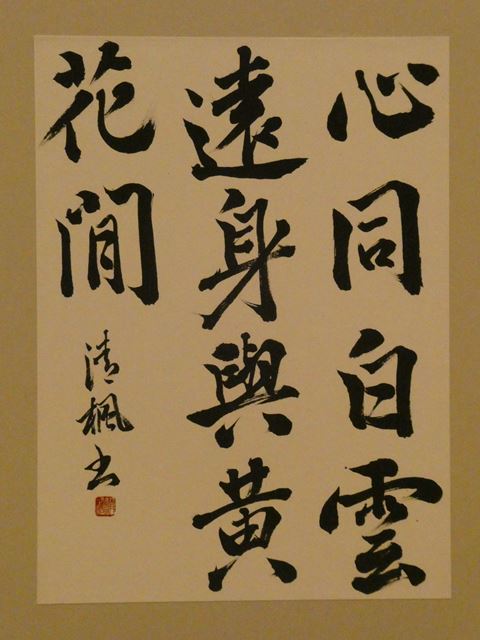 心同白雲
遠身與黃
花間
清楓书